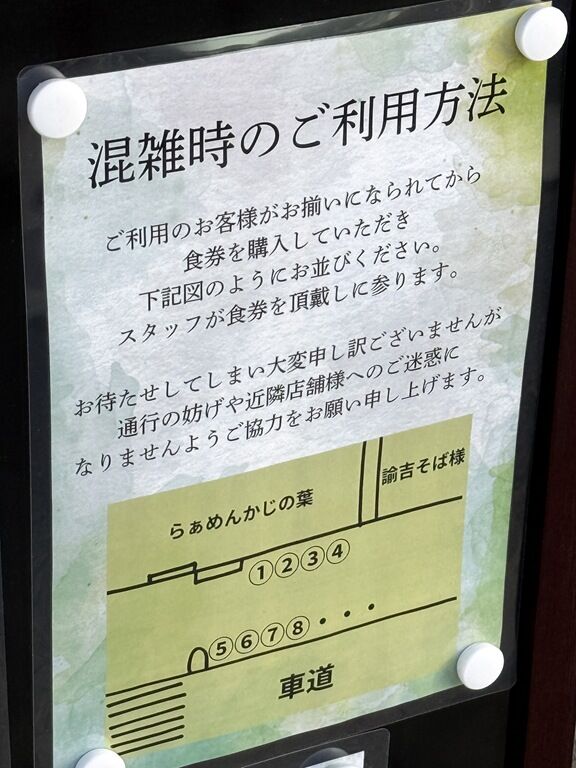 混雑時のご利用方法
ご利用のお客様がお揃いになられてから
食券を購入していただき
下記図のようにお並びください。
スタッフが食券を頂戴しに参ります。
お待たせしてしまい大変申し訳ございませんが
通行の妨げや近隣店舗様へのご迷惑に
なりませんようご協力をお願い申し上げます。
らぁめんかじの葉
諭吉そば様
①②③④
⑤⑥⑦⑧・・・
車道